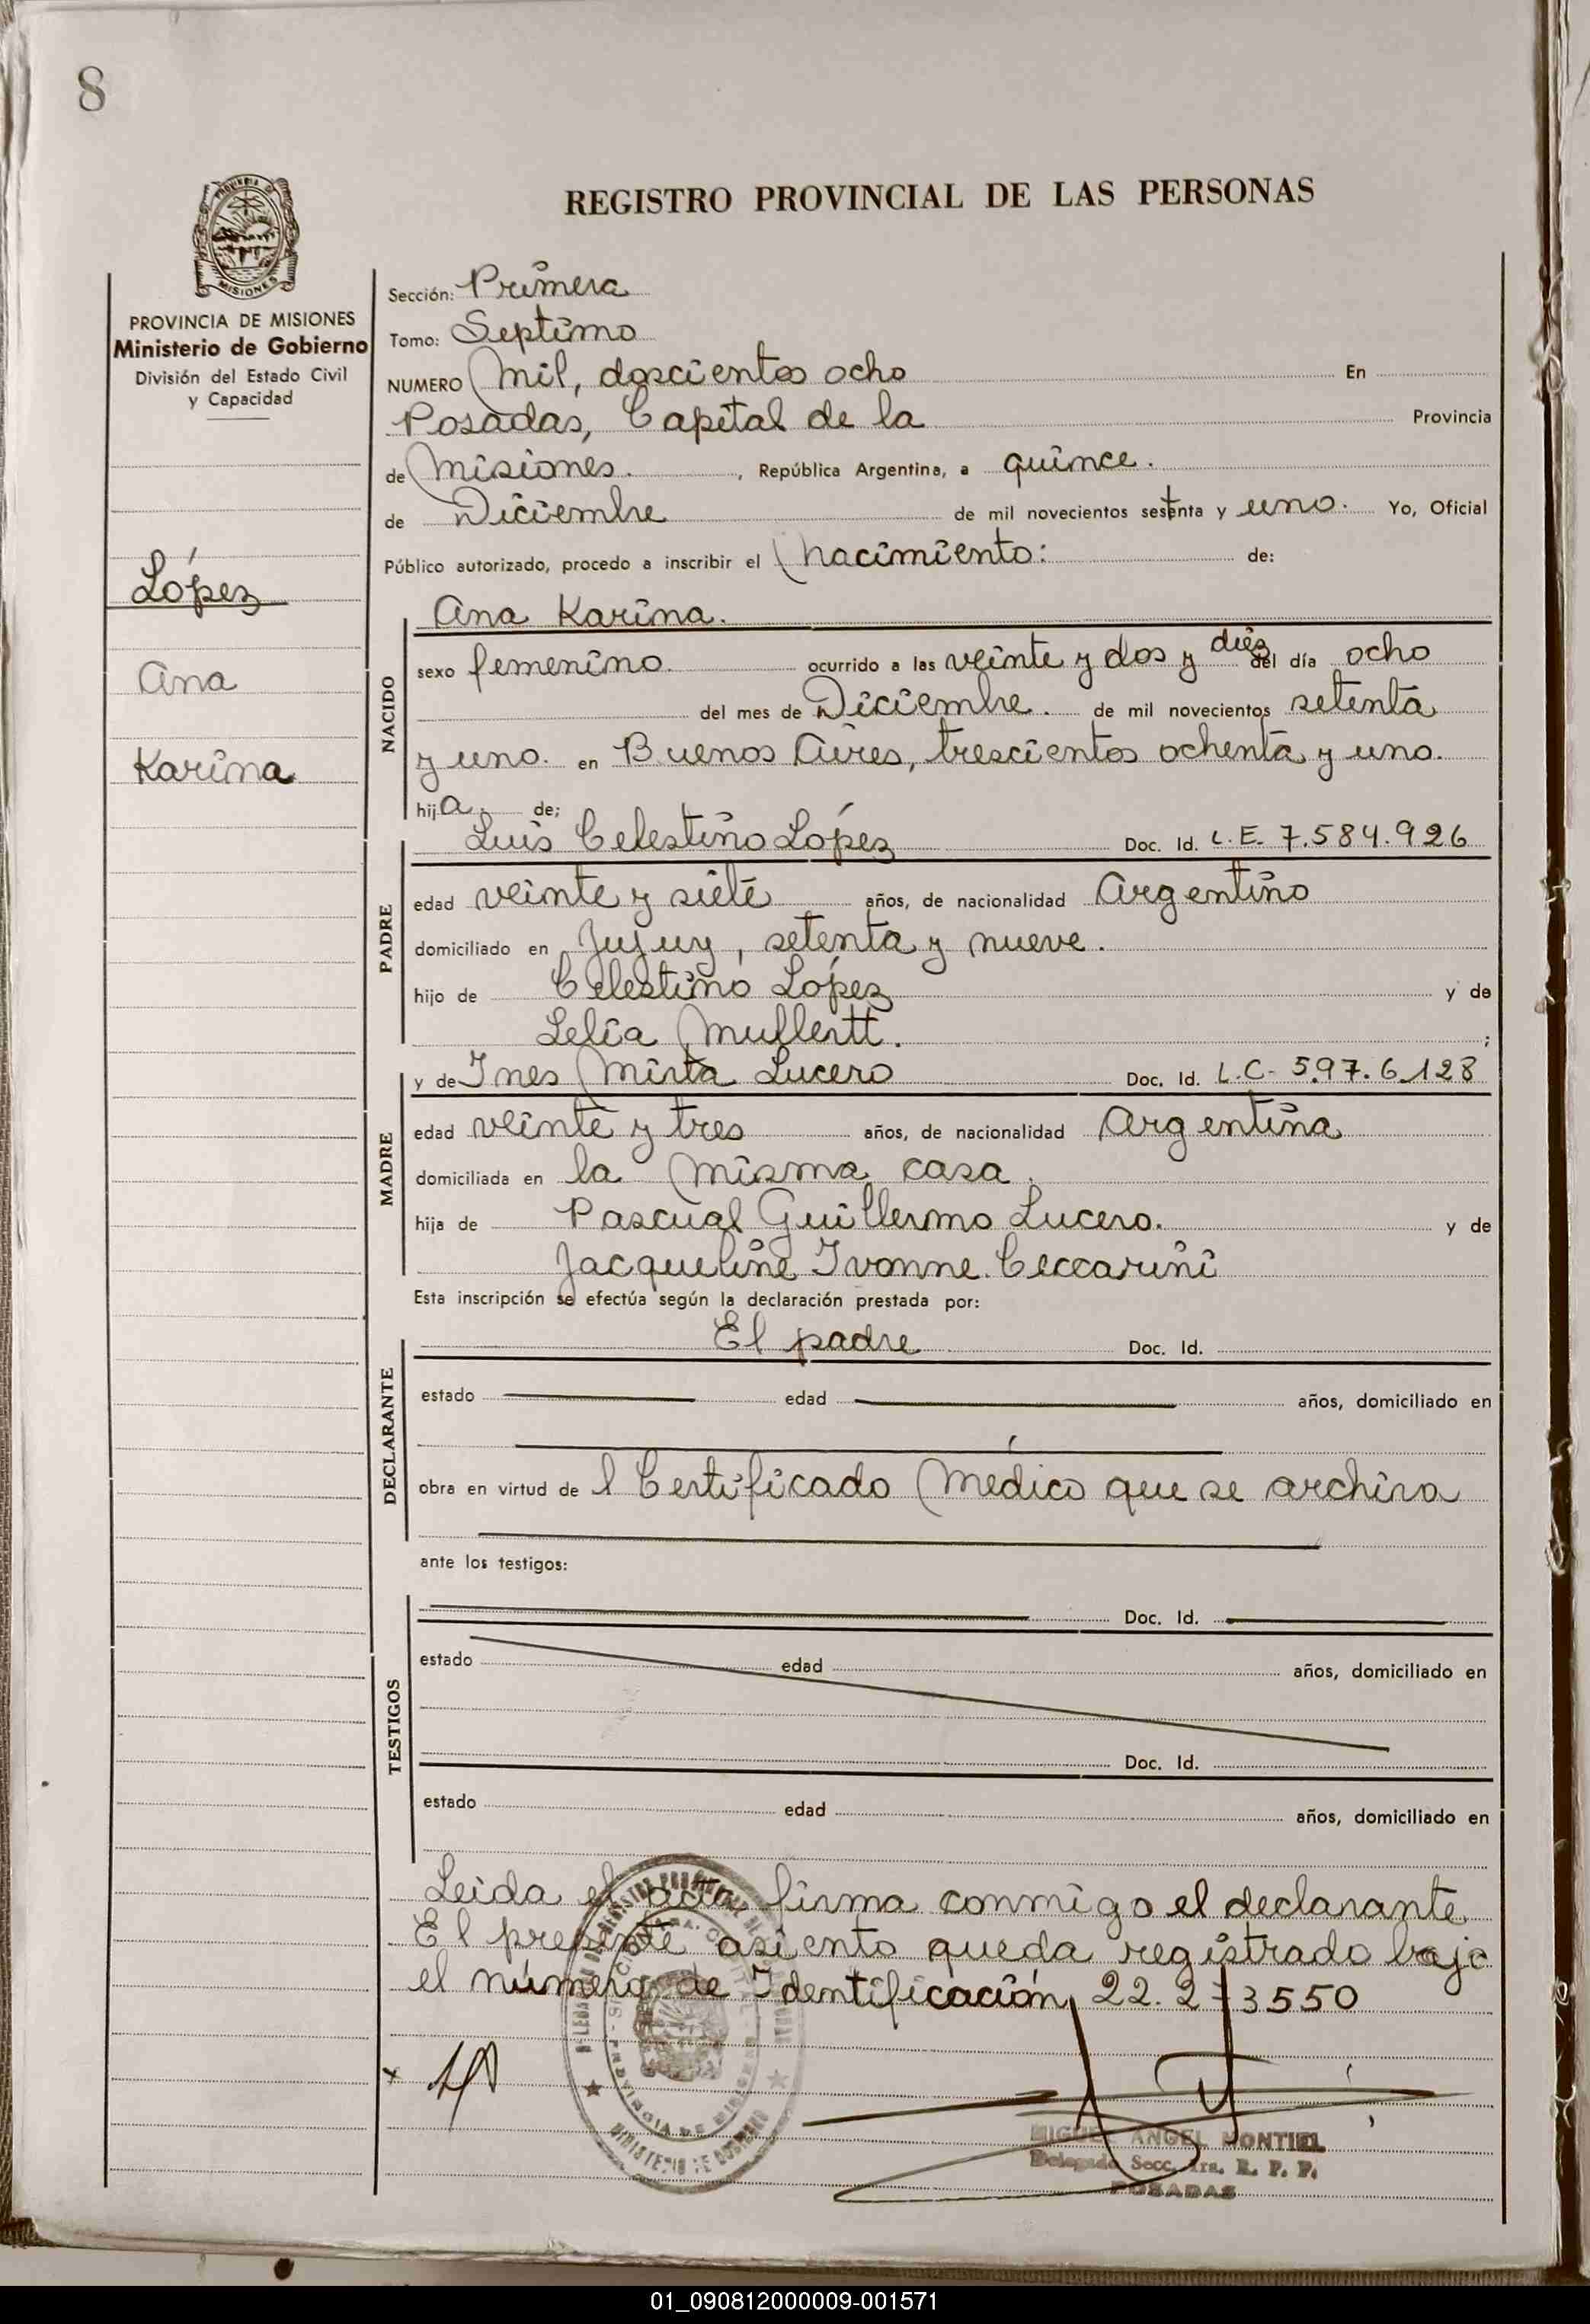 8
REGISTRO PROVINCIAL DE LAS PERSONAS
PROVINCIA DE
MISIONES
PROVINCIA DE MISIONES
Ministerio de Gobierno
División del Estado Civil
y Capacidad
López
Ana
Karina
Sección: Primera
Tomo: Septimo
NUMERO Mil, doscientos ocho En
Posadas, Capital de la Provincia
de Misiones. , República Argentina, a quince.
de Diciembre de mil novecientos setenta y uno. Yo, Oficial
Público autorizado, procedo a inscribir el Nacimiento: de:
NACIDO
Ana Karina.
sexo femenino. ocurrido a las veinte y dos y diez del día ocho
del mes de Diciembre. de mil novecientos setenta
y uno. en Buenos Aires, trescientos ochenta y uno.
hija. de;
PADRE
Luis Celestino López Doc. Id. L.E. 7.584.926
edad veinte y siete años, de nacionalidad Argentino
domiciliado en Jujuy, setenta y nueve.
hijo de Celestino López y de
Lelia Mullertt. ;
MADRE
y de Ines Mirta Lucero Doc. Id. L.C- 5.97.6.128
edad veinte y tres años, de nacionalidad Argentina
domiciliada en la misma casa.
hija de Pascual Guillermo Lucero. y de
Jacqueline Ivonne Ceccarini
Esta inscripción se efectúa según la declaración prestada por:
DECLARANTE
El padre Doc. Id.
estado edad años, domiciliado en
obra en virtud de l Certificado Médico que se archiva
ante los testigos:
TESTIGOS
Doc. Id.
estado edad años, domiciliado en
Doc. Id.
estado edad años, domiciliado en
Leida el acta firma conmigo el declarante
El presente asiento queda registrado bajo
el número de Identificación, 22.273550
PROVINCIA DE MISIONES
MINISTERIO DE GOBIERNO
MIGUEL ANGEL MONTIEL
Delegado Secc. 1ra. R. P. P.
POSADAS
01_090812000009-001571